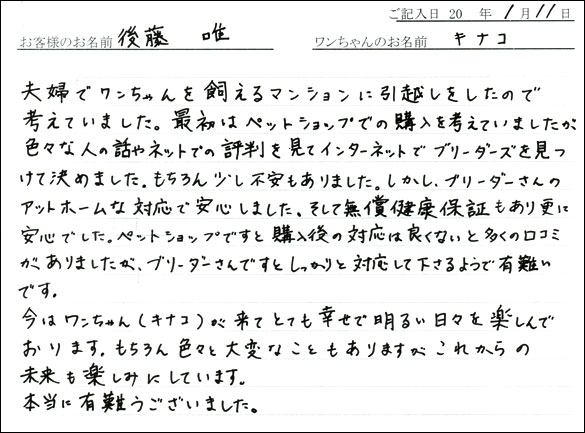 ご記入日 20 年 1月 11日
お客様のお名前 後藤 唯 ワンちゃんのお名前 キナコ
夫婦でワンちゃんを飼えるマンションに引越しをしたので
考えていました。最初はペットショップでの購入を考えていましたが
色々な人の話やネットでの評判を見てインターネットでブリーダーズを見つ
けて決めました。もちろん少し不安もありました。しかし、ブリーダーさんの
アットホームな対応で安心しました、そして無償健康保証もあり更に
安心でした。ペットショップですと購入後の対応は良くないと多くの口コミ
が、ありましたが、ブリーダーさんですとしっかりと対応して下さるようで有難い
です。
今はワンちゃん(キナコ)が来てとても幸せで明るい日々を楽しんで
おります。もちろん色々と大変なこともありますがこれからの
未来も楽しみにしています。
本当に有難うございました。